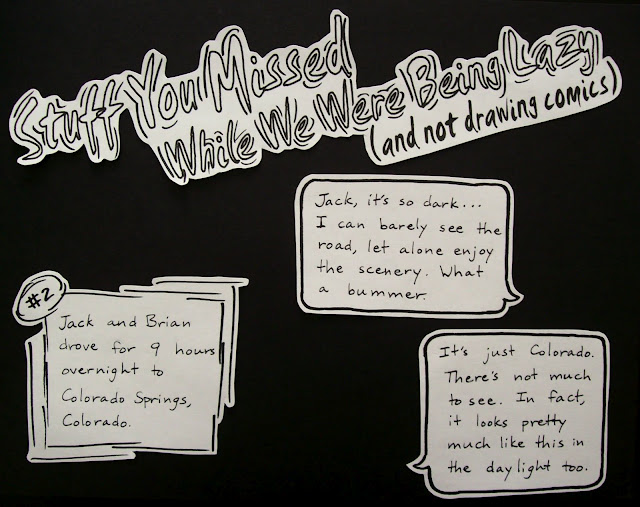 Stuff You Missed
While We Were Being Lazy
(and not drawing comics)
Jack, it's so dark...
I can barely see the
road, let alone enjoy
the scenery. What
a bummer.
#2
Jack and Brian
drove for 9 hours
overnight to
Colorado Springs,
Colorado.
It's just Colorado.
There's not much
to see. In fact,
it looks pretty
much like this in
the daylight too.